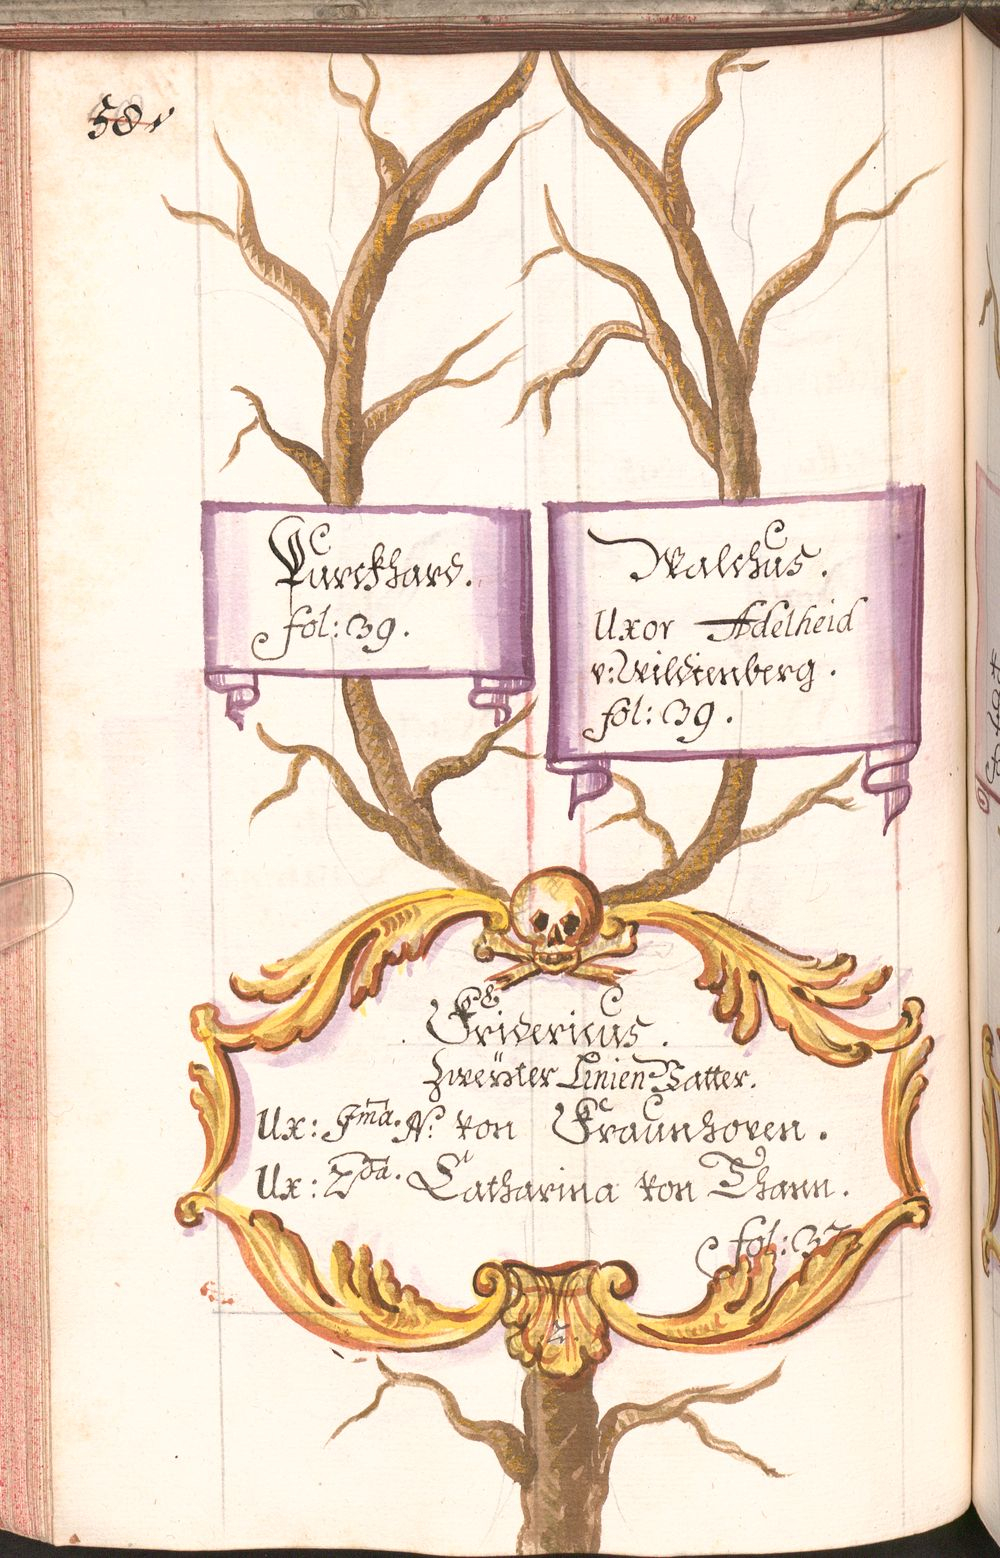 58v
Purckhard.
fol: 39.
Walchus.
Uxor Adelheid
v: Wildtenberg.
fol: 39.
Fridericus.
Zweyter Linien Vatter.
Ux: Ima. N: von Fraunhoven.
Ux: 2da. Catharina von Thann.
fol: 37.
2.